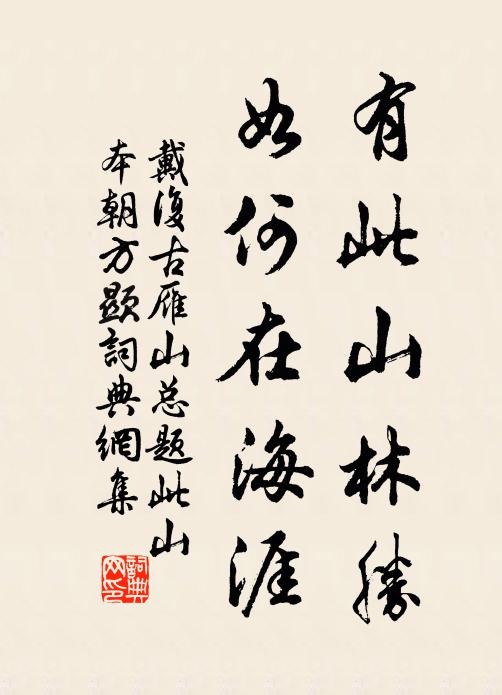 有此山林勝
如何在海涯
戴復古雁山总题此山
本朝方显詞典網集
詞典网印